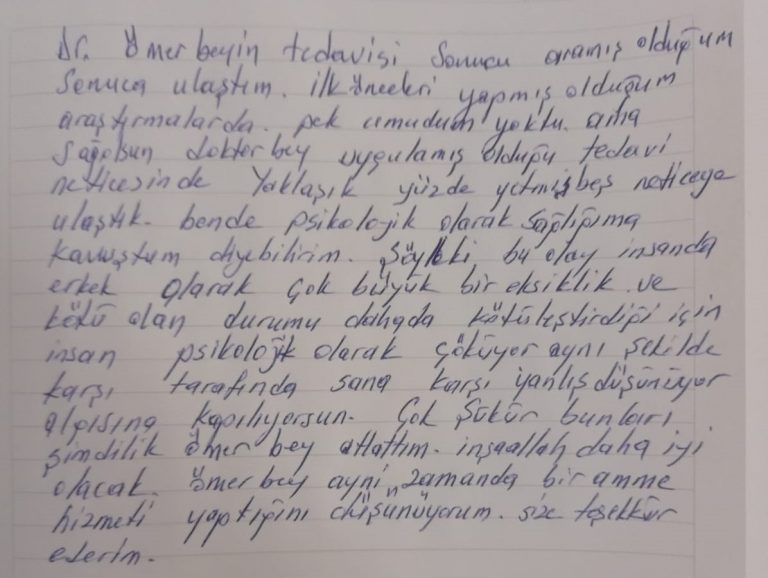 Dr. Ömer beyin tedavisi Sonucu aramış olduğum
Sonuca ulaştım. ilk önceleri yapmış olduğum
araştırmalarda. pek umudum yoktu. ama
Sağolsun doktor bey uygulamış olduğu tedavi
neticesinde Yaklaşık yüzde yetmişbeş neticeye
ulaştık. bende psikolojik olarak Sağlığıma
kavuştum diyebilirim. Şöyleki bu olay insanda
erkek olarak çok büyük bir eksiklik ve
kötü olan durumu dahada kötüleştirdiği için
insan psikolojik olarak çöküyor aynı şekilde
karşı tarafında sana karşı yanlış düşünüyor
algısına kapılıyorsun. Çok Şükür bunları
şimdilik ömer bey atlattım. inşaallah daha iyi
olacak. ömer bey ayni zamanda bir amme
hizmeti yaptığını düşünüyorum. size teşekkür
ederim.